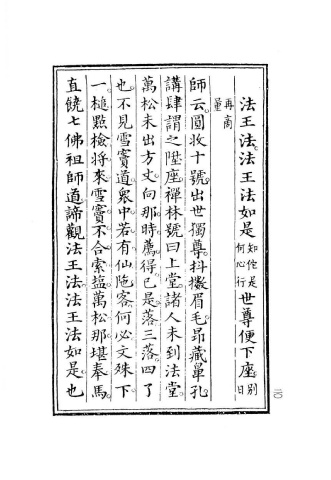 法王法。法王法如是知佗是何心行世尊便下座。別日
再商量
師云。圓收十號。出世獨尊。抖擻眉毛。昂藏鼻孔。
講肆謂之陞座。禪林號曰上堂。諸人未到法堂。
萬松未出方丈。向那時薦得。已是落三落四了
也。不見雪竇道。眾中若有仙陁客。何必文殊下
一槌。點檢將來。雪竇不合索鹽。萬松那堪奉馬。
直饒七佛祖師道。諦觀法王法。法王法如是。也
二〇